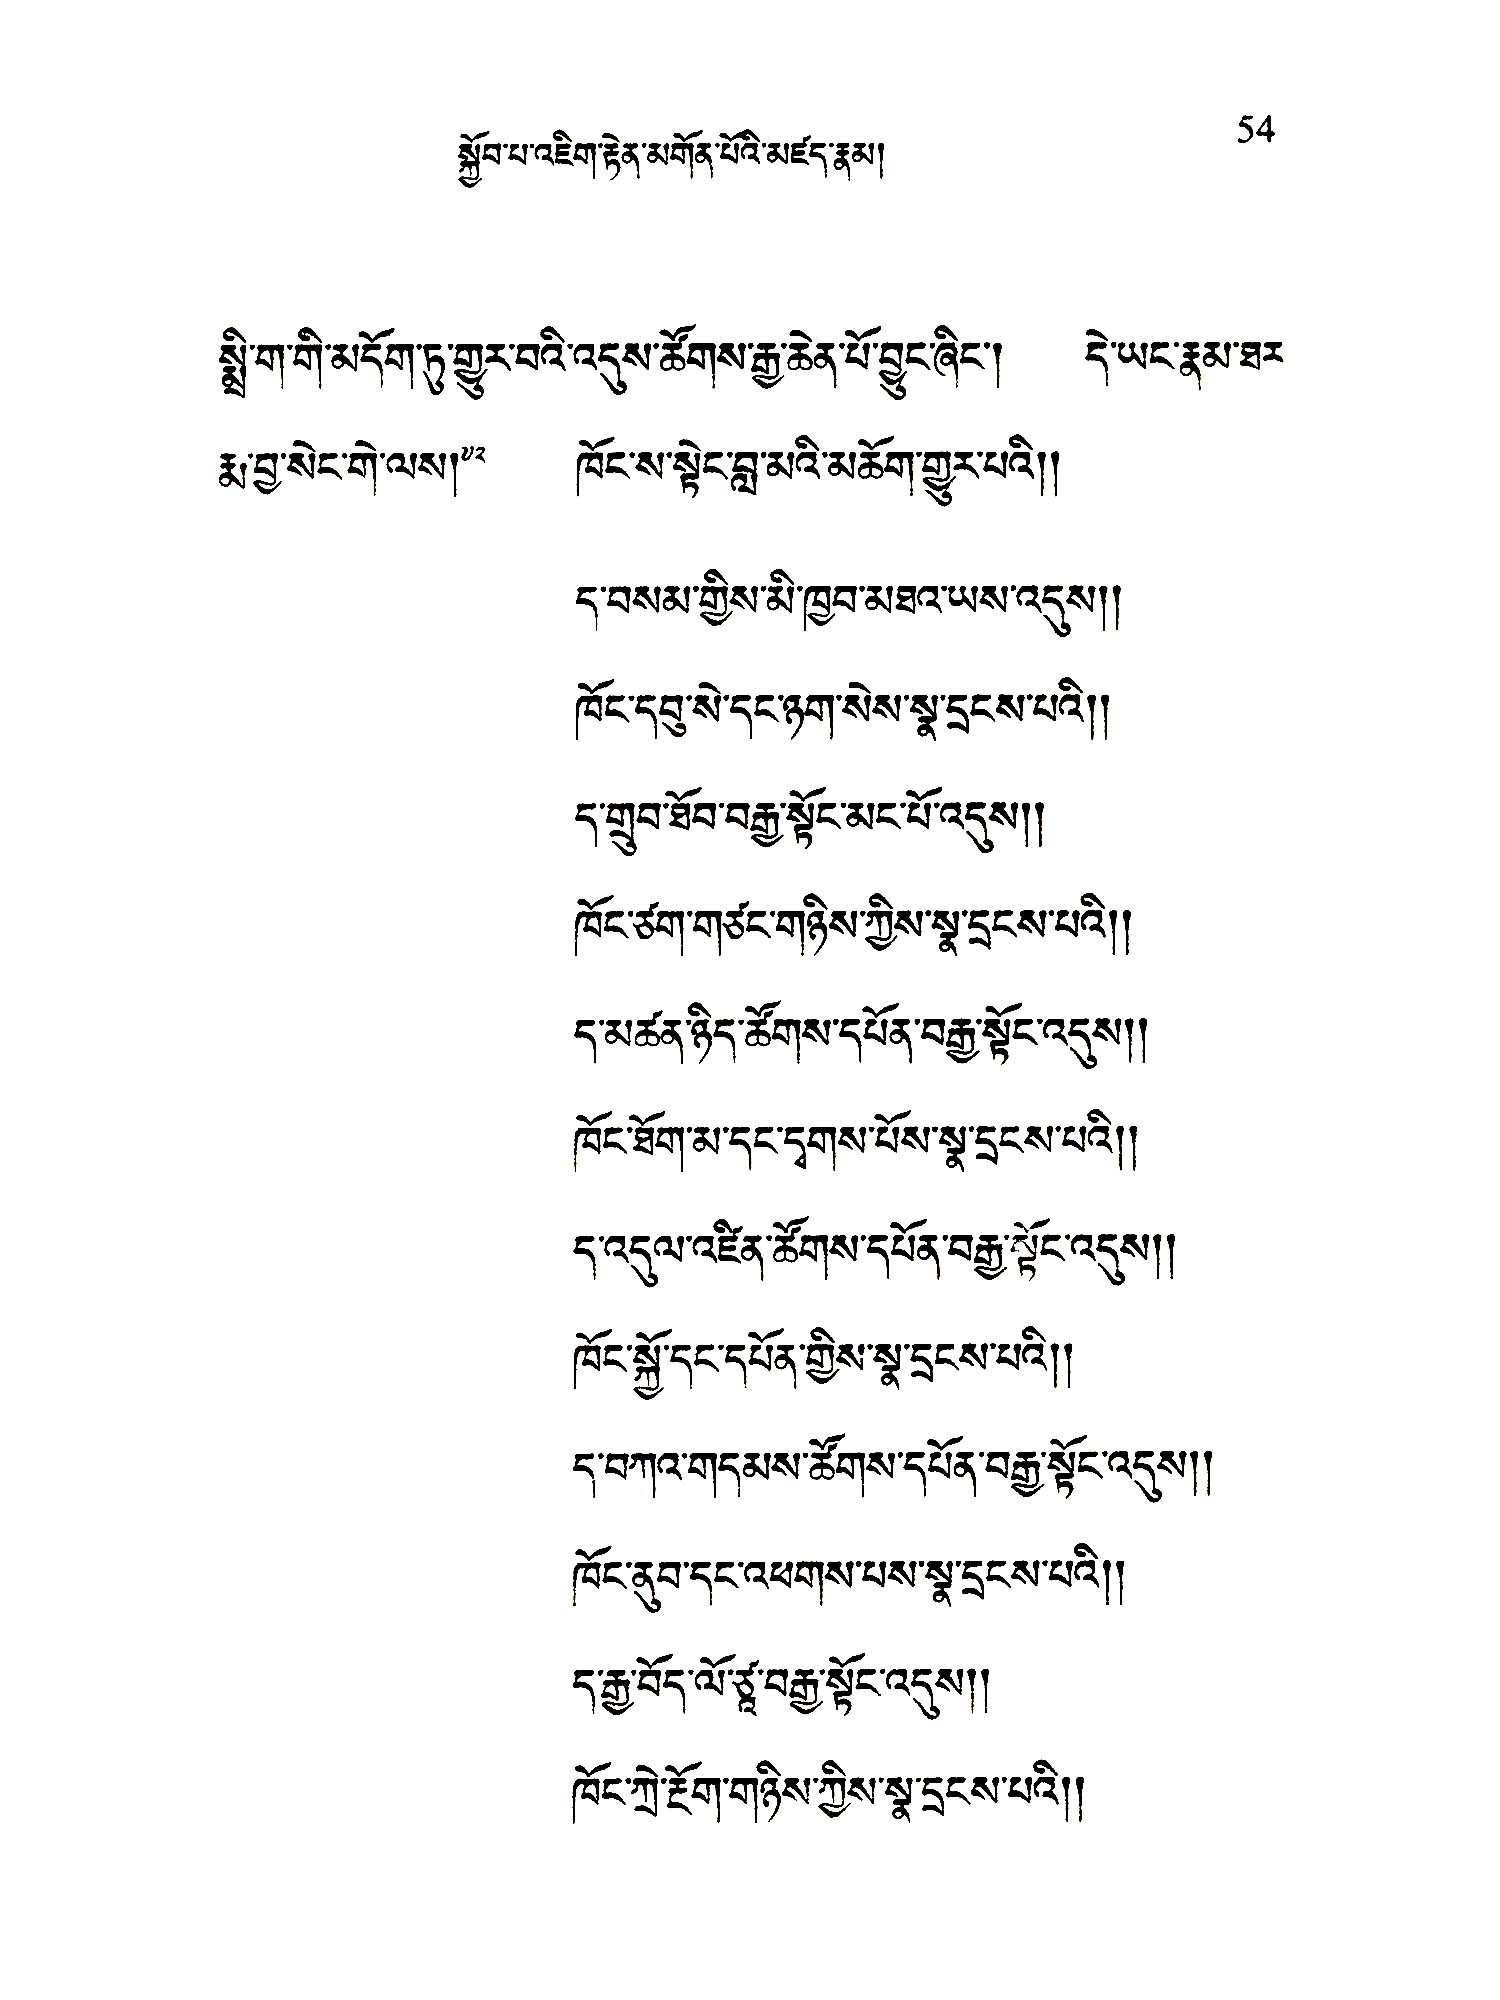 54
སྐྱོབ་པ་འཇིག་རྟེན་མགོན་པོའི་མཛད་རྣམ།
སྨྲི་ག་གི་མདོག་ཏུ་གྱུར་བའི་འདུས་ཚོགས་རྒྱ་ཆེན་པོ་བྱུང་ཞིང་། དེ་ཡང་རྣམ་ཐར
རྨ་བྱ་སེང་གེ་ལས།༥༢ ཁོང་ས་སྟེང་བླ་མའི་མཆོག་གྱུར་པའི།།
ད་བསམ་གྱིས་མི་ཁྱབ་མཐའ་ཡས་འདུས།།
ཁོང་དབུ་སེ་དང་ཉག་སེས་སྣ་དྲངས་པའི།།
ད་གྲུབ་ཐོབ་བརྒྱ་སྟོང་མང་པོ་འདུས།།
ཁོང་ཙག་གཙང་གཉིས་ཀྱིས་སྣ་དྲངས་པའི།།
ད་མཚན་ཉིད་ཚོགས་དཔོན་བརྒྱ་སྟོང་འདུས།།
ཁོང་ཐོག་མ་དང་དྭགས་པོས་སྣ་དྲངས་པའི།།
ད་འདུལ་འཛིན་ཚོགས་དཔོན་བརྒྱ་སྟོང་འདུས།།
ཁོང་སྐྱོ་དང་དཔོན་གྱིས་སྣ་དྲངས་པའི།།
ད་བཀའ་གདམས་ཚོགས་དཔོན་བརྒྱ་སྟོང་འདུས།།
ཁོང་ནུབ་དང་འཕགས་པས་སྣ་དྲངས་པའི།།
ད་རྒྱ་བོད་ལོ་ཙྪ་བརྒྱ་སྟོང་འདུས།།
ཁོང་ཀྲེ་རྔོག་གཉིས་ཀྱིས་སྣ་དྲངས་པའི།།